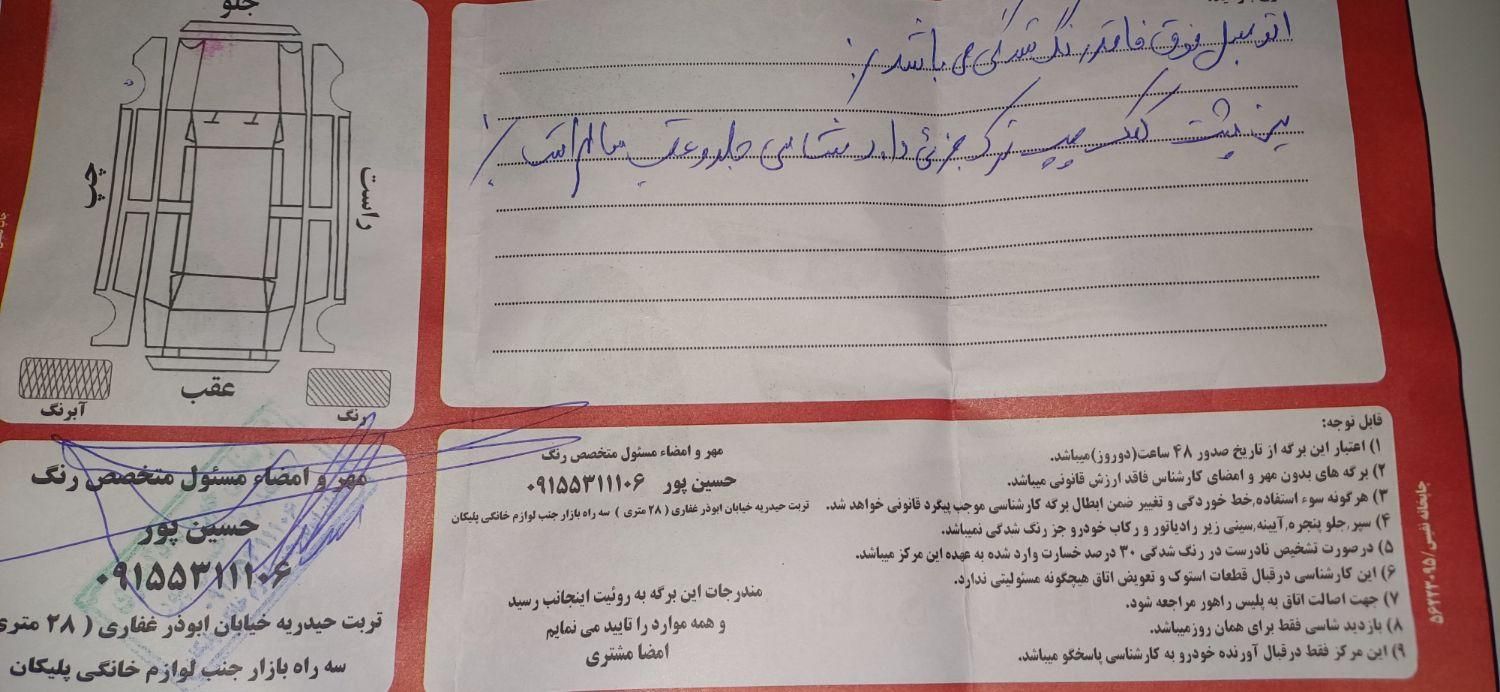 جلو
چپ
راست
عقب
آبرنگ
رنگ
اتومبیل فوق فاقد رنگ شدگی می باشد
پشت کمک چپ ترک جزئی دارد شاسی جلو و عقب سالم است
مهر و امضاء مسئول متخصص رنگ
حسین پور
۰۹۱۵۵۳۱۱۱۰۶
تربت حیدریه خیابان ابوذر غفاری ( ۲۸ متری
سه راه بازار جنب لوازم خانگی پلیکان
قابل توجه:
۱) اعتبار این برگه از تاریخ صدور ۴۸ ساعت(دوروز)میباشد.
۲) برگه های بدون مهر و امضای کارشناس فاقد ارزش قانونی میباشد.
۳) هرگونه سوء استفاده,خط خوردگی و تغییر ضمن ابطال برگه کارشناسی موجب پیگرد قانونی خواهد شد.
۴) سپر,جلو پنجره,آیینه,سینی زیر رادیاتور و رکاب خودرو جز رنگ شدگی نمیباشد.
۵) درصورت تشخیص نادرست در رنگ شدگی ۳۰ درصد خسارت وارد شده به عهده این مرکز میباشد.
۶) این کارشناسی درقبال قطعات استوک و تعویض اتاق هیچگونه مسئولیتی ندارد.
۷) جهت اصالت اتاق به پلیس راهور مراجعه شود.
۸) بازدید شاسی فقط برای همان روزمیباشد.
۹) این مرکز فقط درقبال آورنده خودرو به کارشناسی پاسخگو میباشد.
مهر و امضاء مسئول متخصص رنگ
حسین پور ۰۹۱۵۵۳۱۱۱۰۶
تربت حیدریه خیابان ابوذر غفاری ( ۲۸ متری ) سه راه بازار جنب لوازم خانگی پلیکان
مندرجات این برگه به روئیت اینجانب رسید
و همه موارد را تایید می نمایم
امضا مشتری
چاپخانه نفیس/۵۶۲۲۳۰۹۵